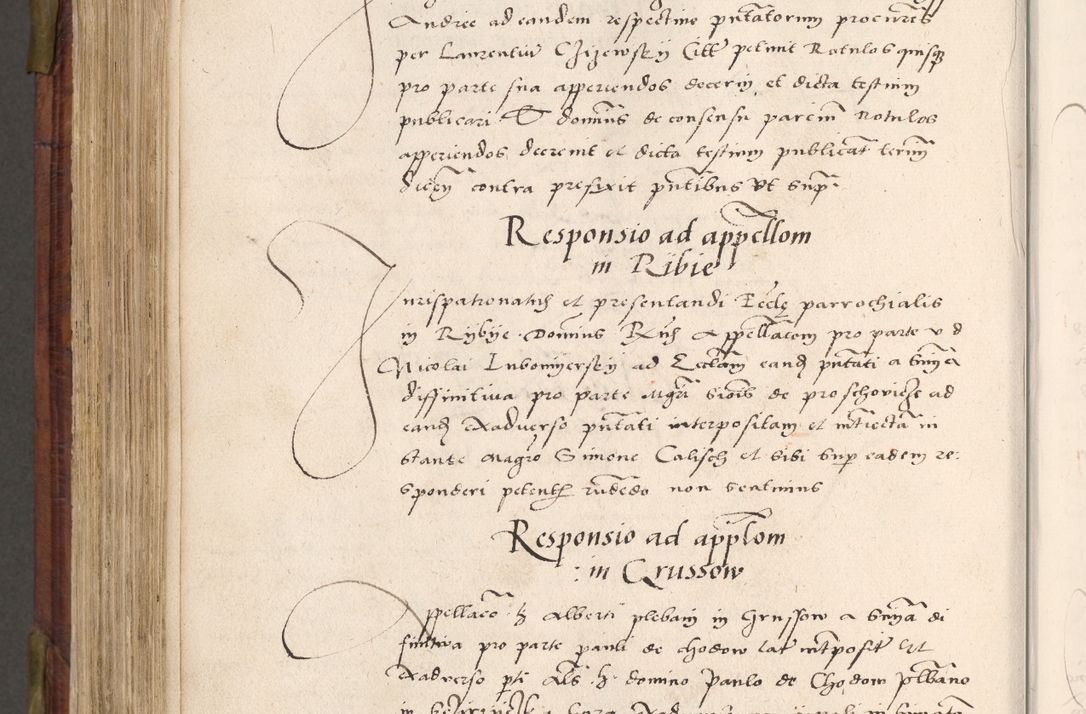 Andree ad eandem respective pntatorum procures
per Laurentiu Czijewskij Citt petunt Rotulos quosq
pro parte sua apperiendos decerni et dicta testium
publicari D dominus de consensu parcium Rotulos
apperiendos decrevit et dicta testium publicat termi
dicen contra prefixit pntibus vt supra
Responsio ad appellom
in Ribie
Jurispatronatus et presentandi Eccle parrochialis
in Rijbije Dominus Rns Appellacem pro parte v d
Nicolai Lubomyerskij ad Ecclam eand pntati a snia
diffinitiva pro parte Mgri Siois de Proschovicze ad
eand exadverso pntati interpositam et intiectam in
stante Magro Simone Calisch et sibi sup eadem re:
sponderi petente tudedo non
Responsio ad applom
in Crussow
Appellaco h Alberti plebani in Grussow a snia di
finitiva pro parte Pauli de Chodow lat intposit Ut
exadverso pti als h domino Paulo de Chodow plbano